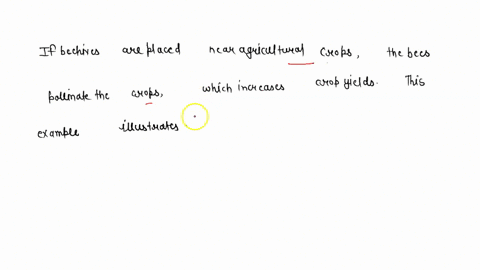 If beehives are placed near agricultural crops, the bees
pollinate the crops, which increases crop yields. This
example illustrates